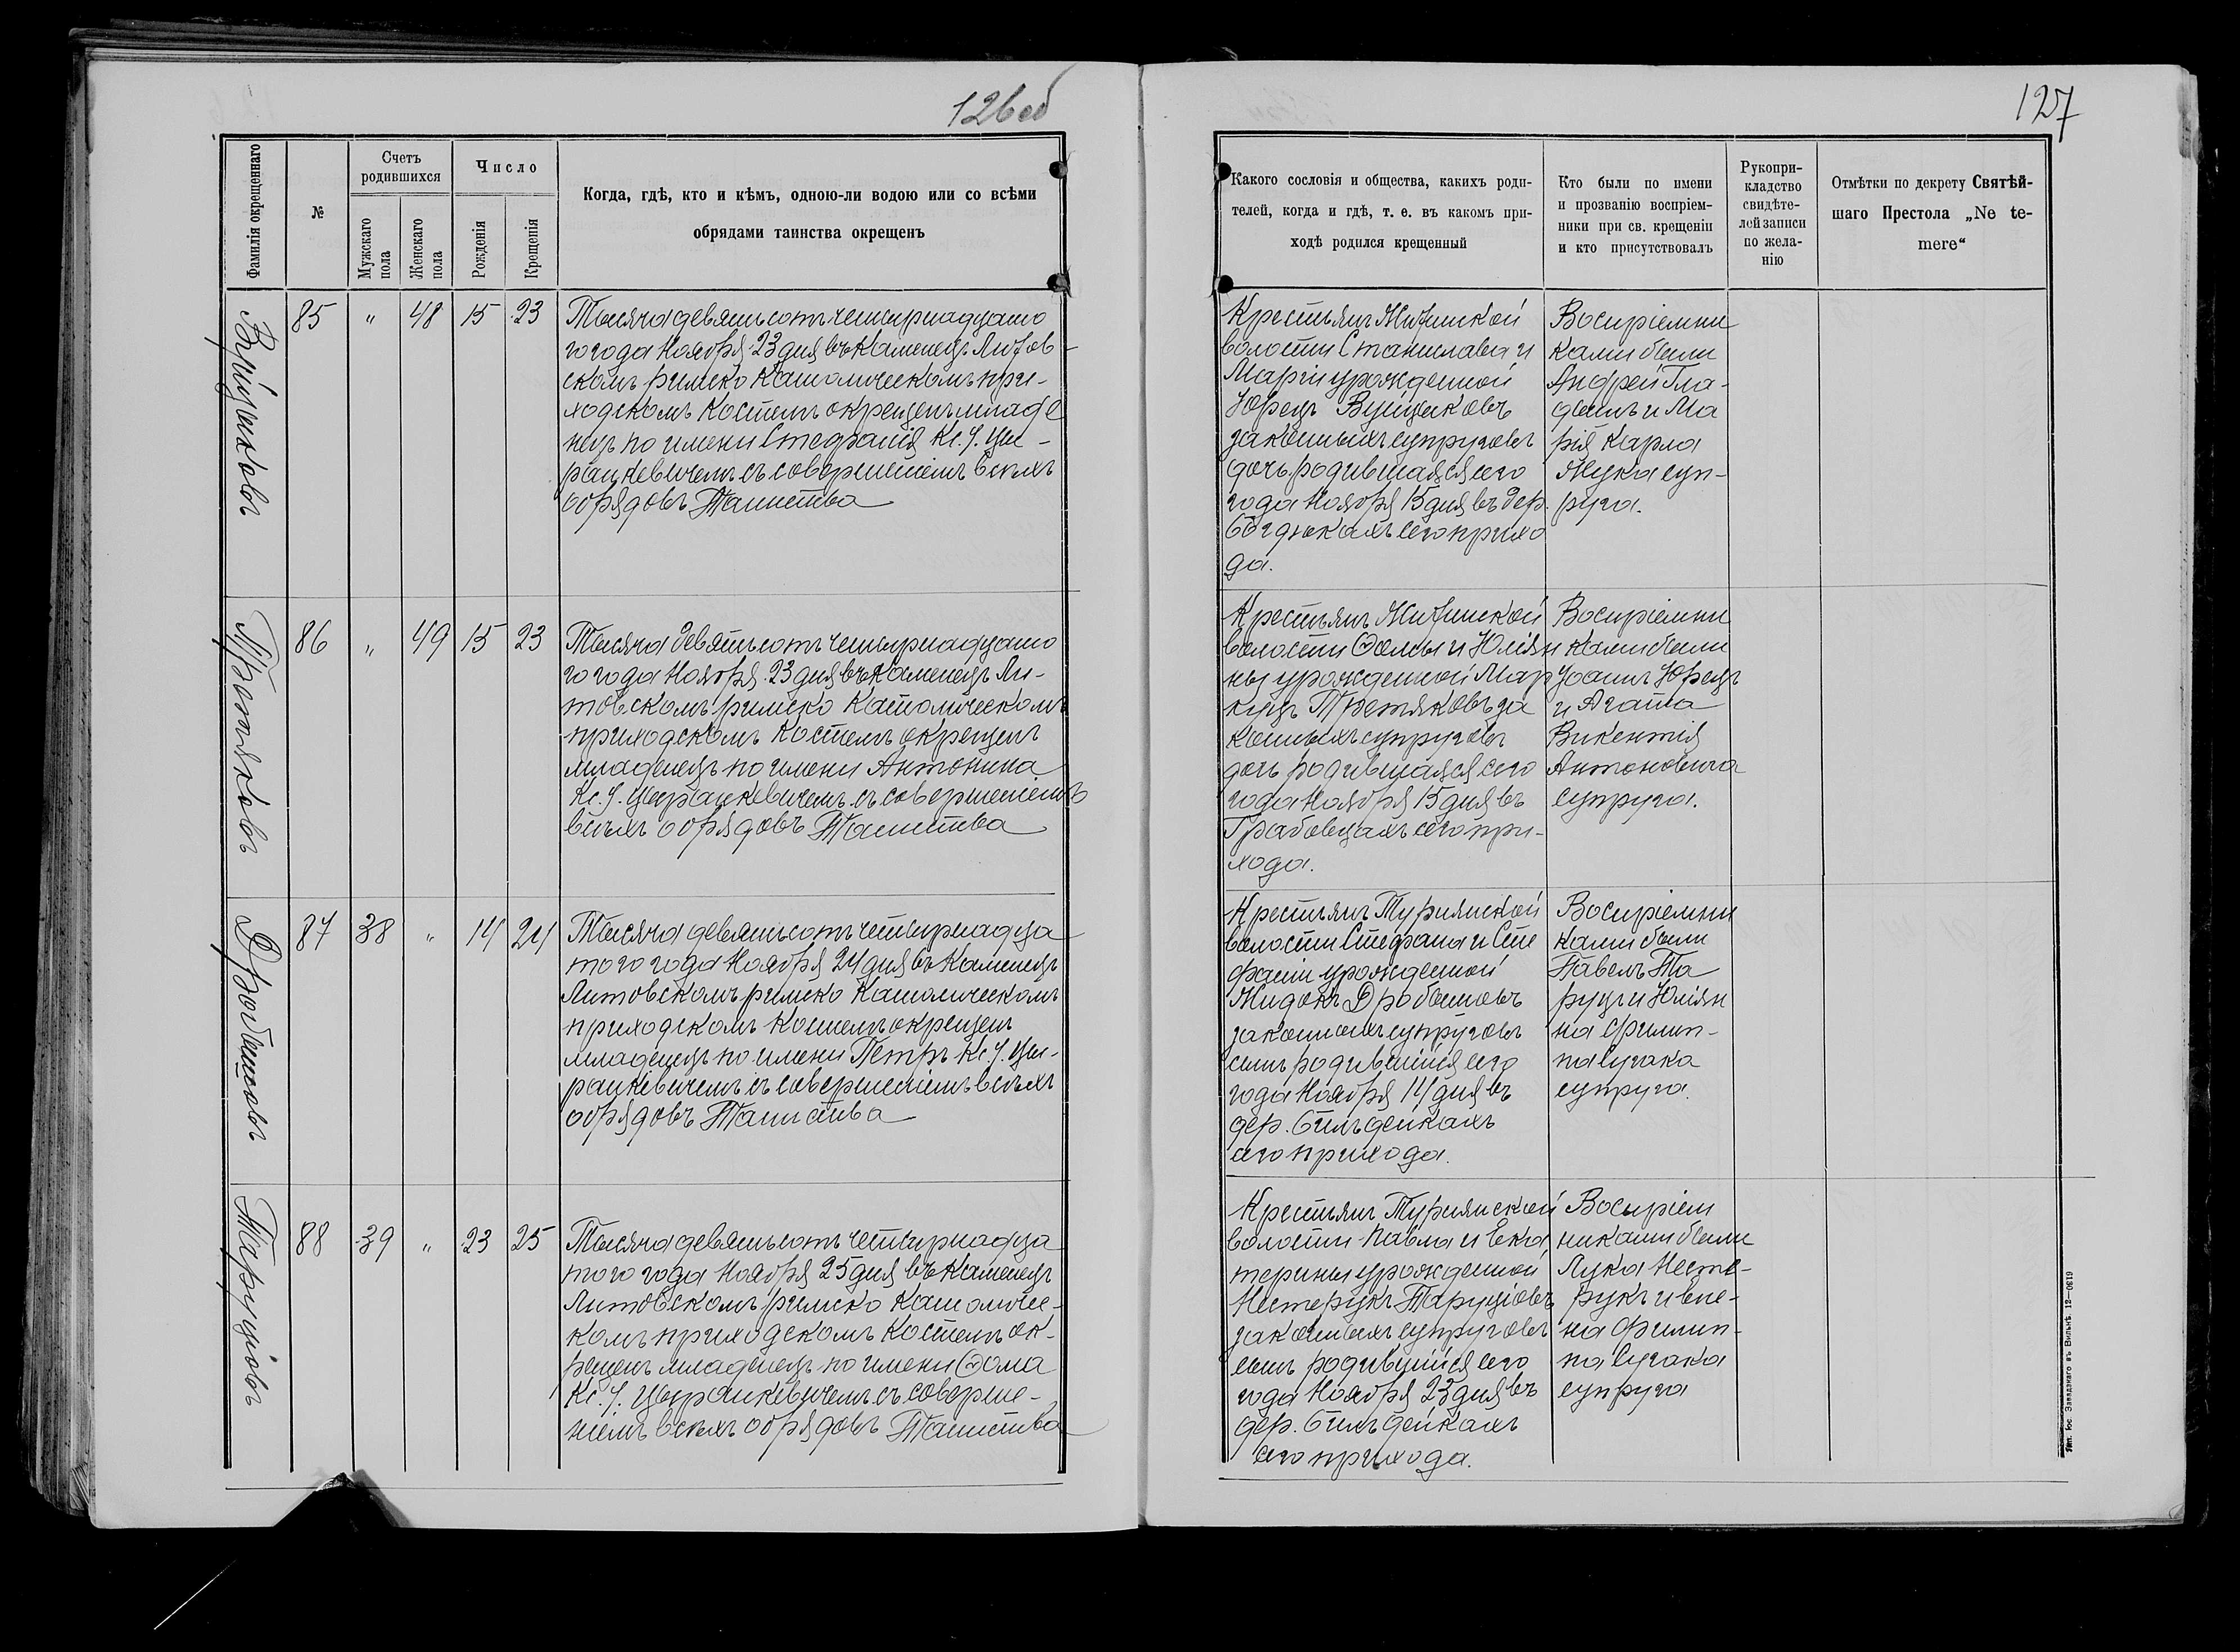 126 об
Фамилія окрещеннаго
№
Счетъ
родившихся
Мужскаго
пола
Женскаго
пола
Число
Рожденія
Крещенія
Когда, гдѣ, кто и кѣмъ, одною-ли водою или со всѣми
обрядами таинства окрещенъ
85 " 48 15 23
Тысяча девятьсотъ четырнадцато
го года Ноября 23 дня въ Каменецъ Литов-
скомъ римско Католическомъ при-
ходскомъ Костелѣ окрещенъ младе
нецъ по имени Стефанія Кс. У. Цы-
ранкевичемъ съ совершеніемъ всѣхъ
обрядовъ Таинства
Третьяковъ
86 " 49 15 23
Тысяча девятьсотъ четырнадцато
го года Ноября 23 дня въ Каменецъ Ли-
товскомъ римско Католическомъ
приходскомъ Костелѣ окрещенъ
младенецъ по имени Антонина
Кс. У. Цыранкевичемъ съ совершеніемъ
всѣхъ обрядовъ Таинства
87 38 " 14 24
Тысяча девятьсотъ четырнадца
того года Ноября 24 дня въ Каменецъ
Литовскомъ римско Католическомъ
приходскомъ Костелѣ окрещенъ
младенецъ по имени Петръ Кс. У. Цы-
ранкевичемъ съ совершеніемъ всѣхъ
обрядовъ Таинства
Таруціовъ
88 39 " 23 25
Тысяча девятьсотъ четырнадца
того года Ноября 25 дня въ Каменецъ
Литовскомъ римско Католичес-
комъ приходскомъ Костелѣ ок-
рещенъ младенецъ по имени Ѳома
Кс. У. Цыранкевичемъ съ соверше-
ніемъ всѣхъ обрядовъ Таинства
127
Какого сословія и общества, какихъ роди-
телей, когда и гдѣ, т. е. въ какомъ при-
ходѣ родился крещенный
Кто были по имени
и прозванію воспріем-
ники при св. крещеніи
и кто присутствовалъ
Рукопри-
кладство
свидѣте-
лей записи
по жела-
нію
Отмѣтки по декрету Святѣй-
шаго Престола „Ne te-
mere“
Крестьянъ
волости Станислава и
Маріи урожденной
Юрецъ
законныхъ супруговъ
дочь родившаяся сего
года Ноября 15 дня въ дер.
Богдюкахъ сего прихо
да.
Воспріемни
ками были
Андрей Гла-
и Ма
рія Карла
Жука суп-
руга.
Крестьянъ
волости Ѳомы и Юліян
ны урожденной Мар
Третьяковъ за
конныхъ супруговъ
дочь родившаяся сего
года Ноября 15 дня въ
Грабовцахъ сего при-
хода.
Воспріемни
ками были
Іоаннъ Юрецъ
и Агата
Викентія
Антоновича
супруга.
Крестьянъ Турнянской
волости Стефана и Сте
фаніи урожденной
Жидокъ
законныхъ супруговъ
сынъ родившійся сего
года Ноября 14 дня въ
дер.
сего прихода.
Воспріемни
ками были
Павелъ Та
руцъ и Юліян
на Филип-
па Сугака
супруга.
Крестьянъ Турнянской
волости Павла и Ека
терины урожденной
Нестерукъ Таруціовъ
законныхъ супруговъ
сынъ родившійся сего
года Ноября 23 дня въ
дер.
сего прихода.
Воспріем
никами были
Лука Несте-
рукъ и
на Филип-
па Сугака
супруга
Тип. Іос. Завадзкаго въ Вильнѣ. 12—0619